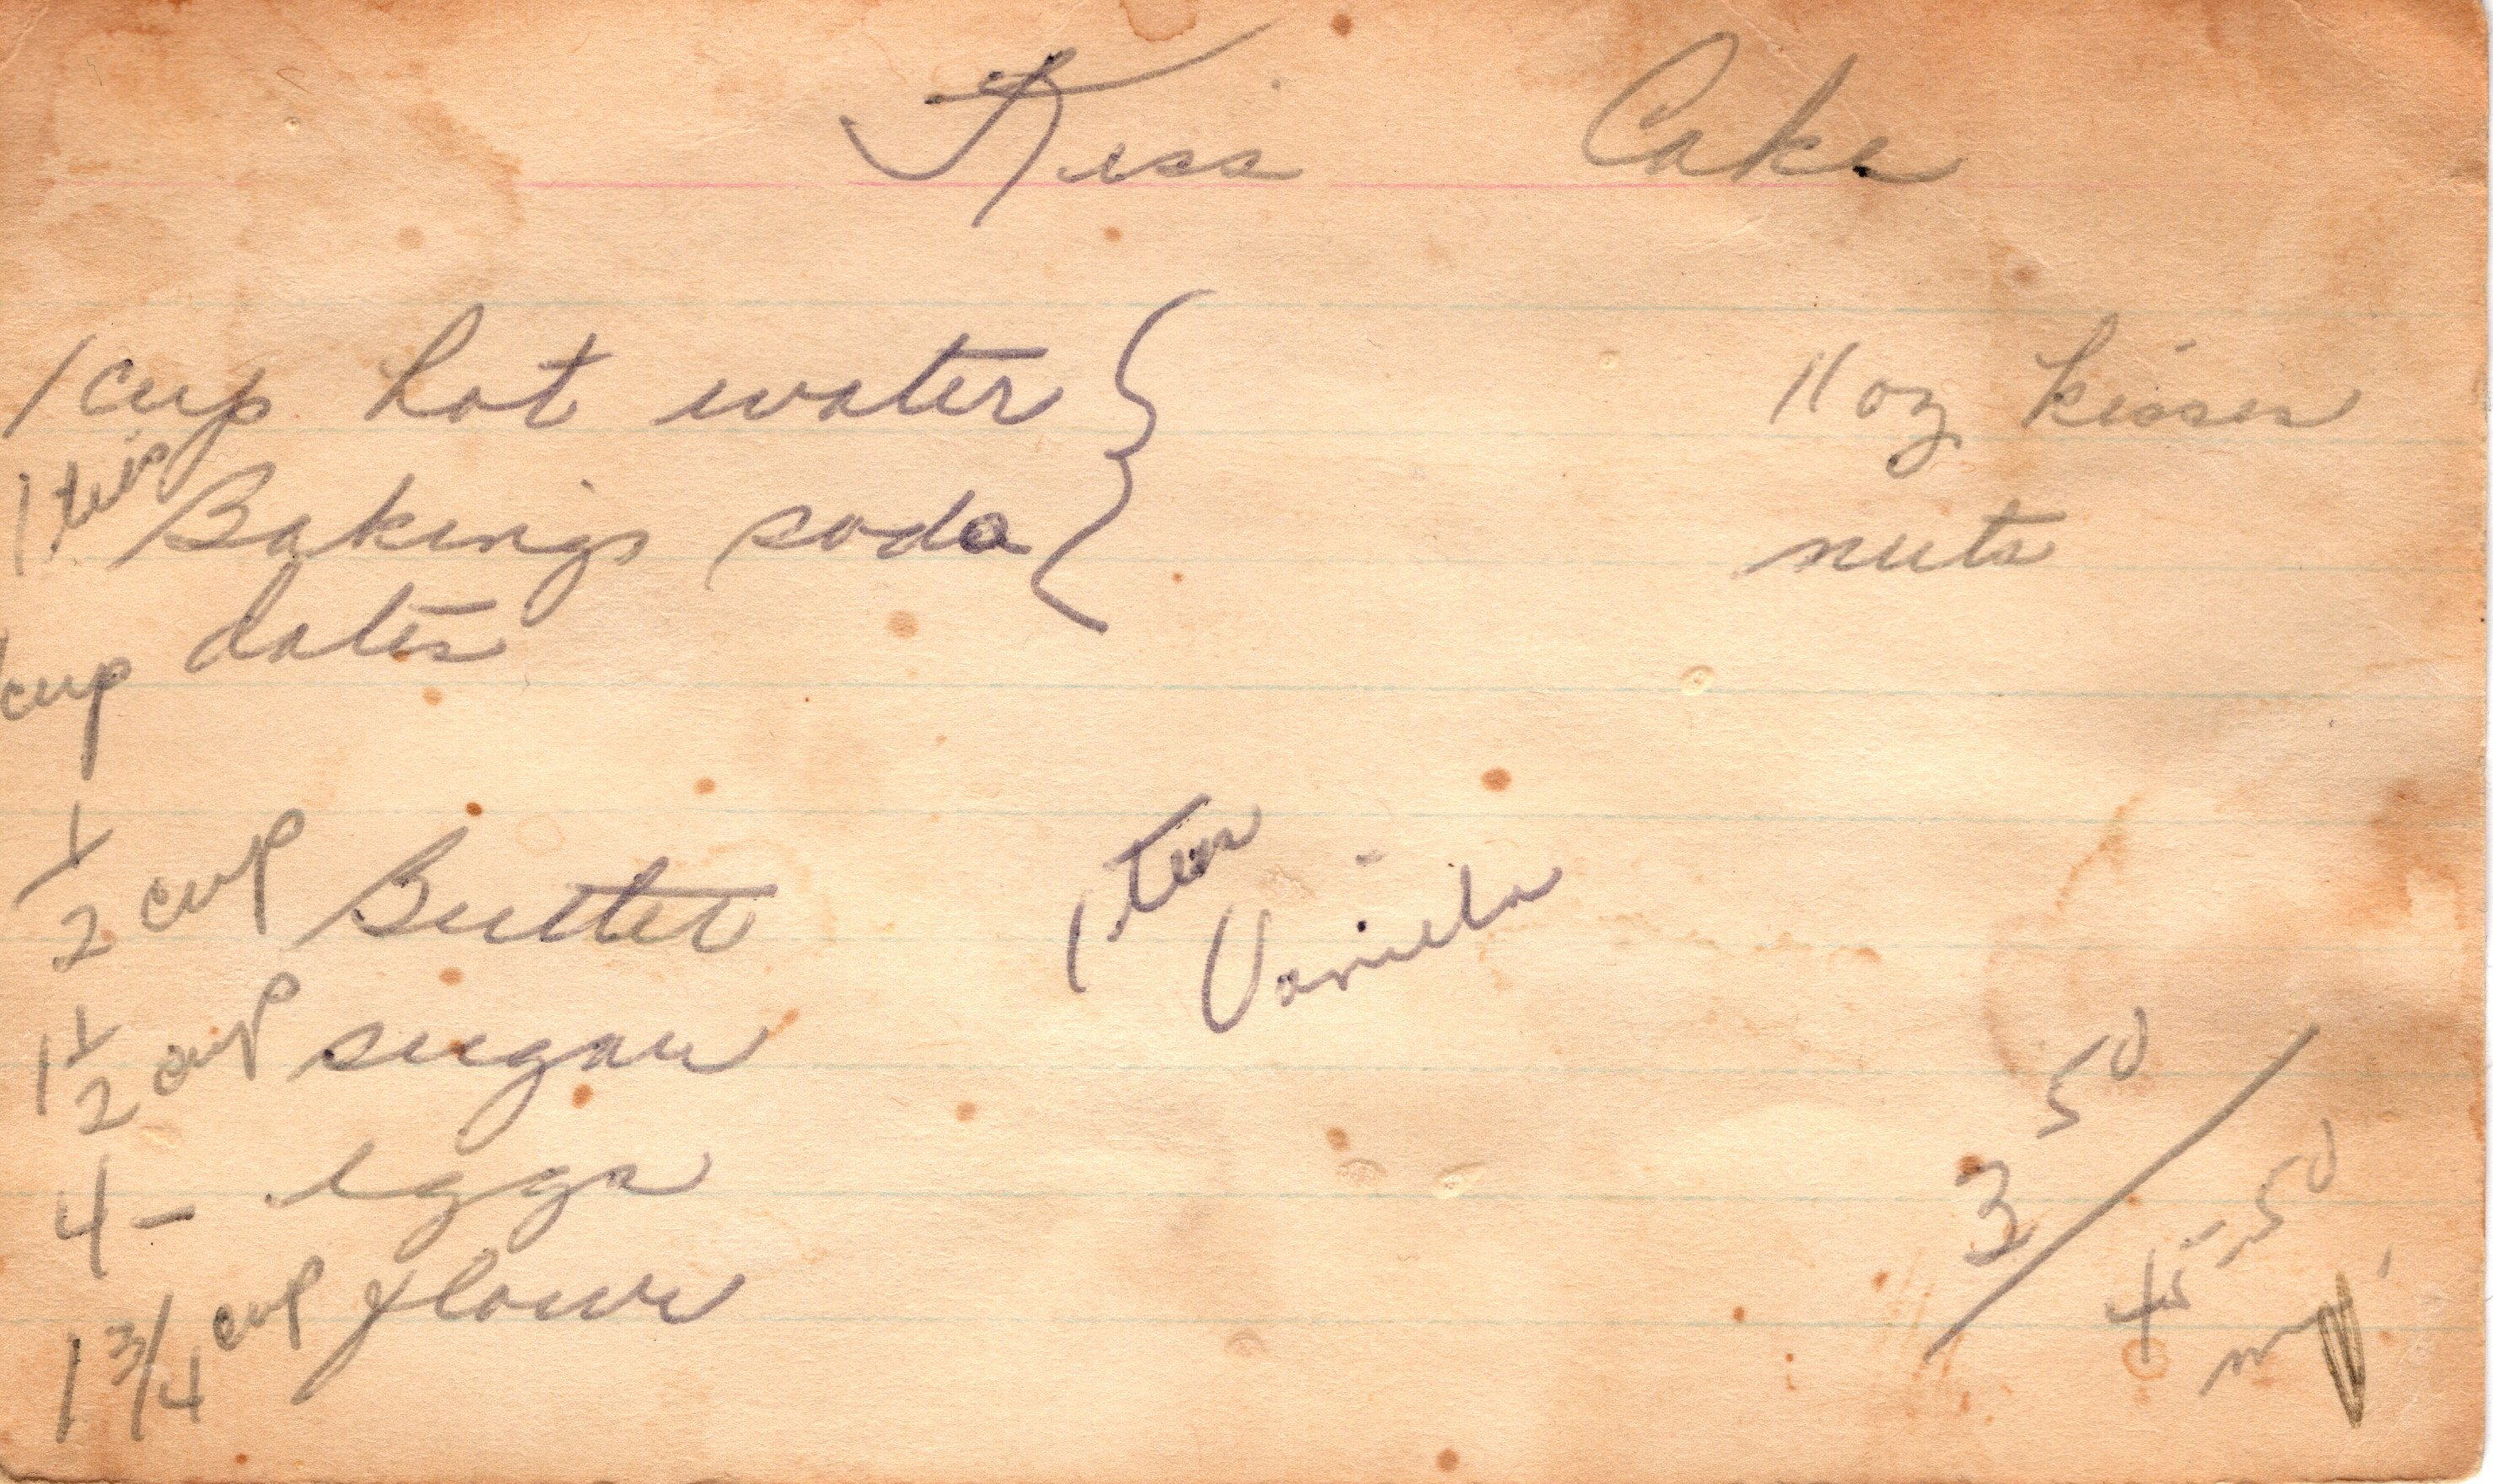 Kiss Cake
1 cup hot water
1 teas Baking soda
cup dates
11 oz kisses
nuts
1/2 cup Butter
1 1/2 cup sugar
4 - eggs
1 3/4 cup flour
1 teas
Vanilla
350
45-50